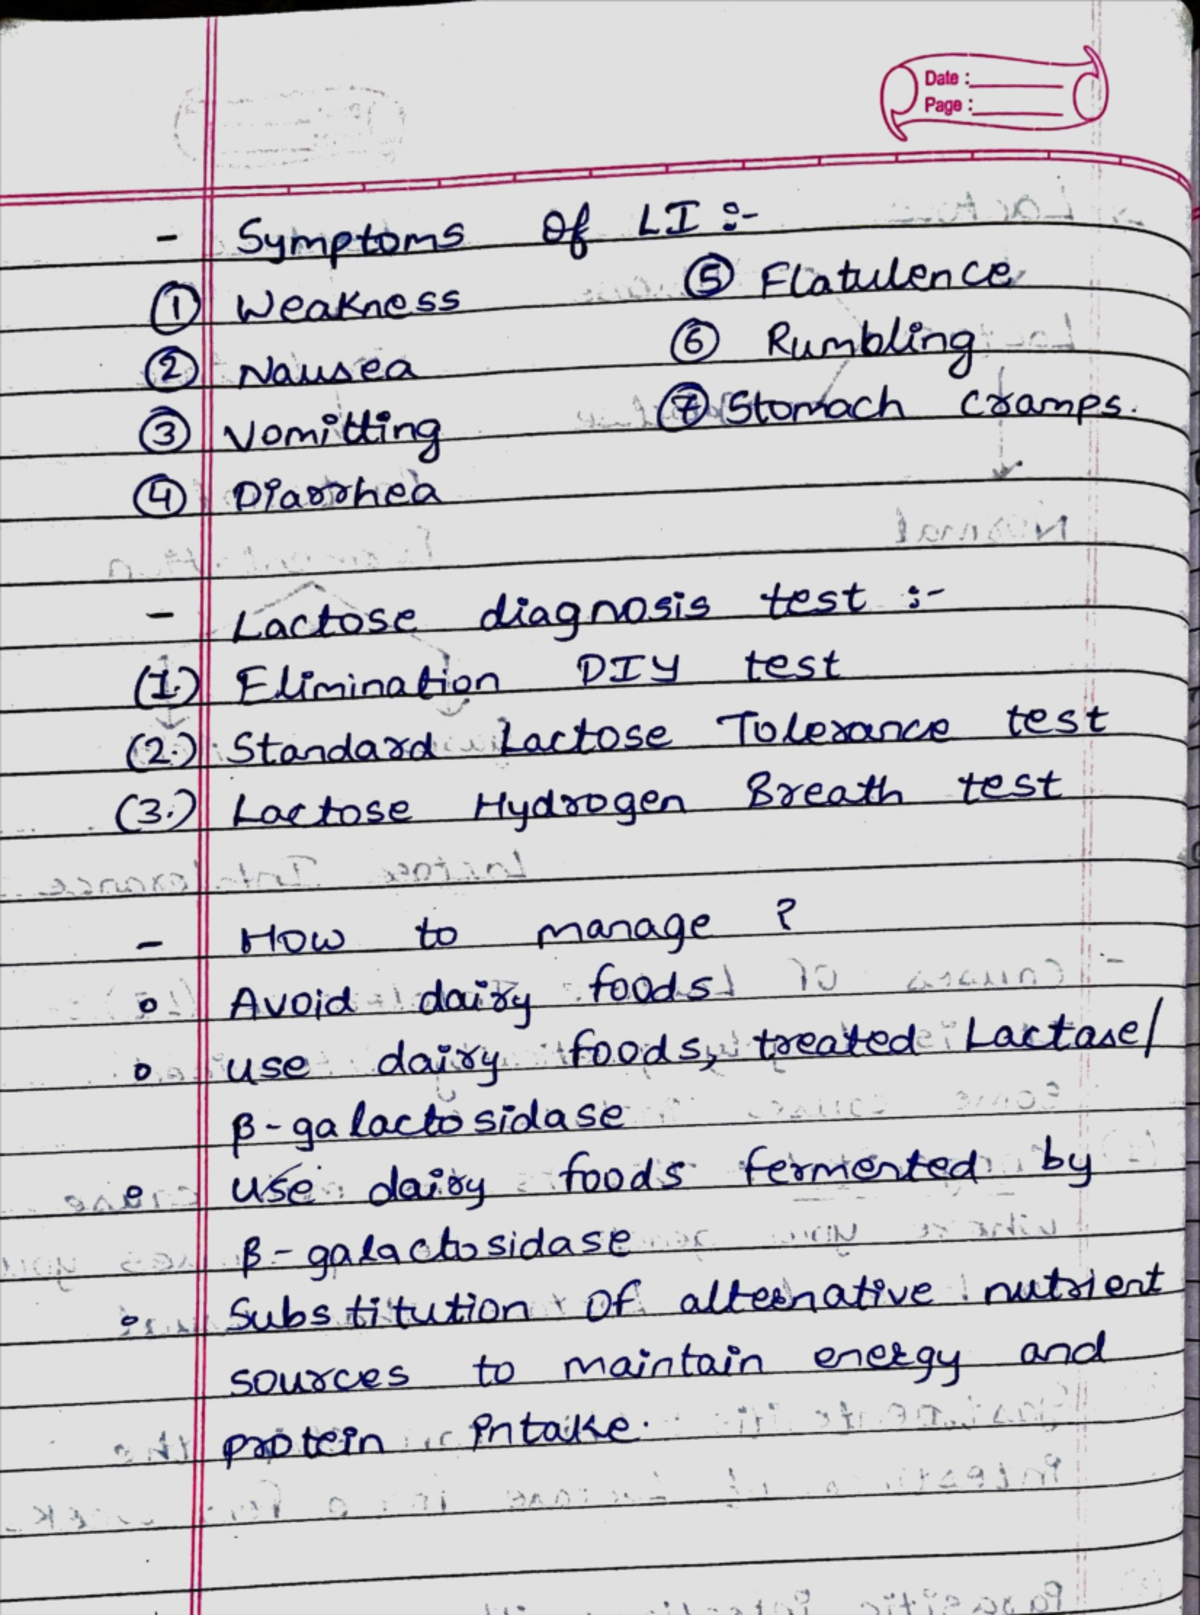 Date :
Page :
- Symptoms of LI :-
① Weakness ⑤ Flatulence
② Nausea ⑥ Rumbling
③ Vomitting ⑦ Stomach cramps.
④ Diarrhea
- Lactose diagnosis test :-
(1.) Elimination DIY test
(2.) Standard Lactose Tolerance test
(3.) Lactose Hydrogen Breath test
- How to manage ?
o Avoid dairy foods
o use dairy foods, treated Lactase/
β-galactosidase
o use dairy foods fermented by
β-galactosidase
o Substitution of alternative nutrient
sources to maintain energy and
protein intake.